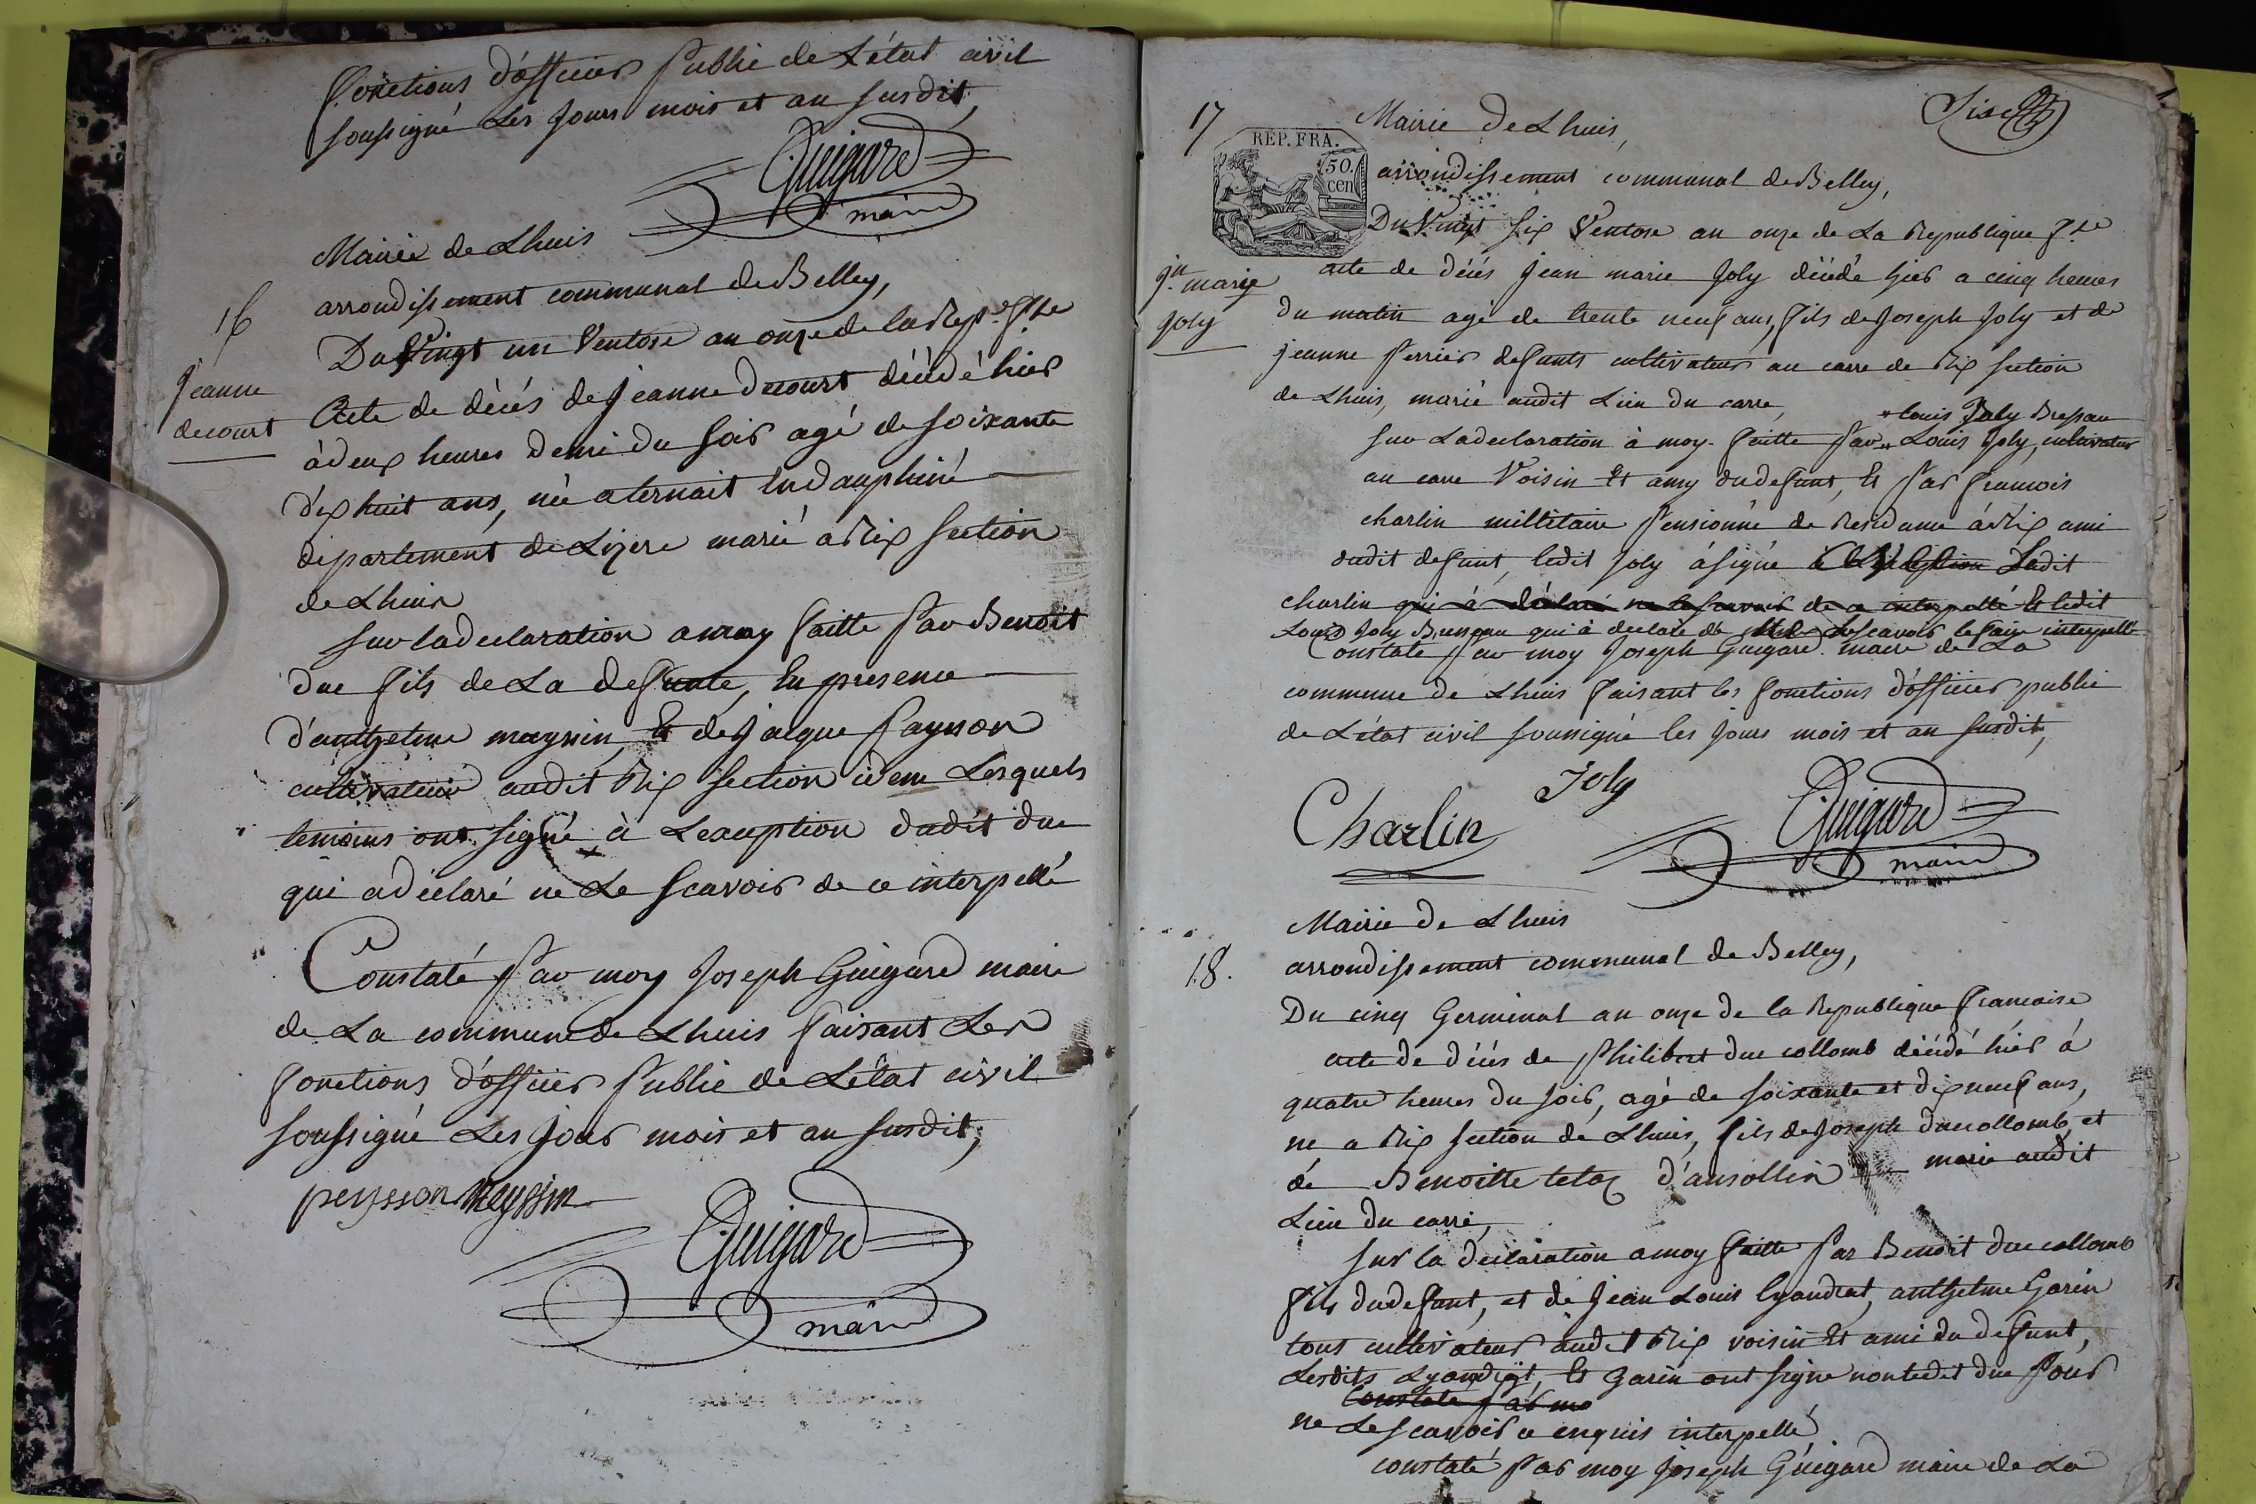 fonctions d'officier public de L'état civil
soussigné Les jours mois et an susdit,
Guigard
maire
Mairie de Lhuis
arrondissement communal de Belley,
16
Du Vingt un Ventose an onze de la Rep.e f.se
jeanne
decourt
Acte de décés de jeanne decourt décédé hier
à deux heures demi du soir agé de soixante
dix huit ans, née a ternait En dauphiné
département de Lizere marié a Rix section
de Lhuis
sur la declaration a moy faitte par Benoit
duc fils de La defunte, En presence
d'anthelme meyssin, Et de jacque payson
cultivateur audit Rix section idem Lesquels
temoins ont signé à Lexception dudit duc
qui a déclaré ne Le scavoir de ce interpellé
Constaté par moy Joseph Guigard maire
de La commune de Lhuis faisant Les
fonctions d'officier public de L'état civil
soussigné Les jour mois et an susdit,
peysson meyssin
Guigard
maire
17
Mairie de Lhuis,
REP. FRA.
50.
cen
arrondissement communal de Belley,
Du Vingt six Ventose an onze de La Republique f.se
j.n marie
joly
acte de décés jean marie joly décédé hier a cinq heures
du matin agé de trente neuf ans, fils de joseph joly et de
jeanne perrier defunts cultivateur au carre de Rix section
de Lhuis, marié audit Lieu du carre,
louis Joly Bressau
sur La declaration à moy faitte par Louis joly, cultivateur
au carre Voisin Et amy du defunt, Et par francois
charlin millitaire pensionné de Residance à Rix ami
dudit defunt, ledit joly à signé Ledit
charlin qui à déclaré ne le scavoir de ce interpellé Et ledit
Louis joly qui à declaré de scavoir le faire interpellé
Constaté par moy joseph Guigard maire de La
commune de Lhuis faisant les fonctions d'officier public
de L'état civil soussigné les jours mois et an susdit,
Charlin
Joly
Guigard
maire
Mairie de Lhuis
18.
arrondissement communal de Belley,
Du cinq Germinal an onze de la Republique francaise
acte de décés de philibert duc collomb décédé hier à
quatre heures du soir, agé de soixante et dix neuf ans,
né a Rix section de Lhuis, fils de joseph duc collomb, et
de Benoitte d'ansollin marié audit
Lieu du carré,
sur la déclaration a moy faitte par Benoit duc collomb
fils du defunt, et de jean Louis Lyandrat, anthelme Garin
tous cultivateur audit Rix voisin Et ami du defunt,
Lesdits Lyandrat, Et Garin ont signé non ledit duc pour
Constaté par mo
ne Le scavoir ce enquis interpellé
constaté par moy joseph Guigard maire de La